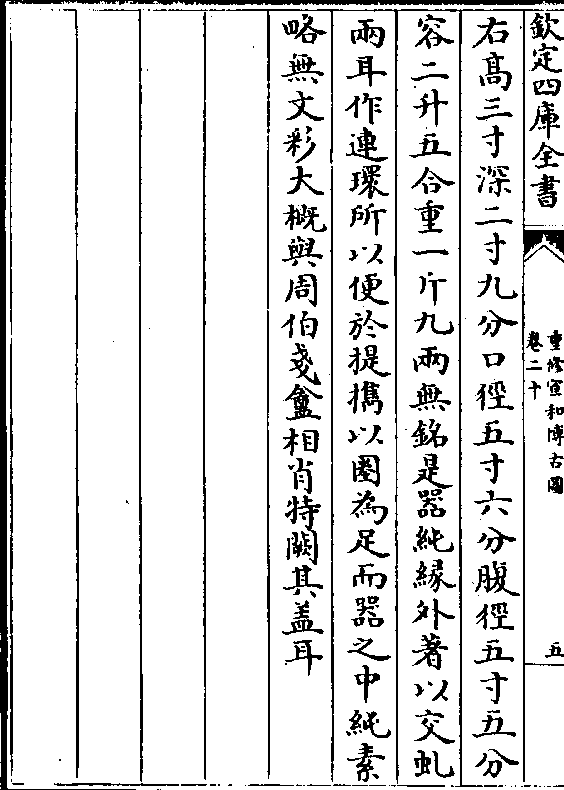 欽定四庫全書
重修宣和博古圖
卷二十
五
右髙三寸深二寸九分口徑五寸六分腹徑五寸五分
容二升五合重一斤九兩無銘是器純緣外著以交虬
兩耳作連環所以便於提擕以圈為足而器之中純素
略無文彩大概與周伯戔盦相肖特闕其盖耳